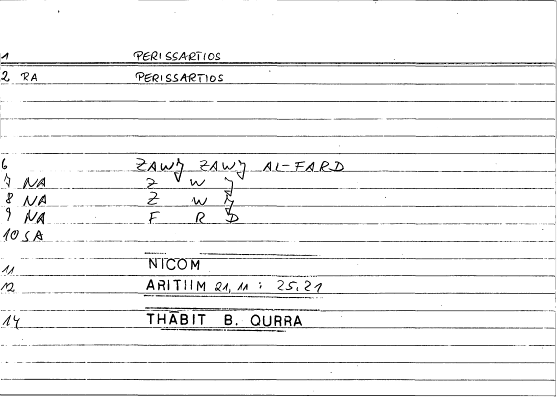 1 PERISSARTIOS
2 RA PERISSARTIOS
6 ZAWJ ZAWJ AL-FARD
7 NA Z W J
8 NA Z W J
9 NA F R D
10 SA
11 NICOM
12 ARITIIM 21, 11 : 25,21
14 THĀBIT B. QURRA